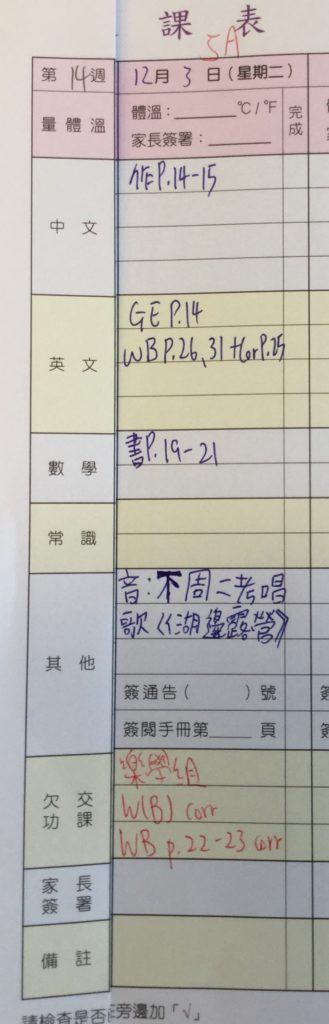 課 表
5A
第 14 週 12 月 3 日 (星期二)
量 體 溫 體溫：______ ℃/℉ 完成
家長簽署：______
中 文 作P.14-15
英 文 GE P.14
WB P.26, 31 + cor P.25
數 學 書P.19-21
常 識
其 他 音：下周二考唱
歌《湖邊露營》
簽通告 ( ) 號
簽閱手冊第____ 頁
欠 交 功 課 樂學組
W(B) corr
WB p.22-23 corr
家 長 簽 署
備 註
請檢查是否
旁邊加「√」